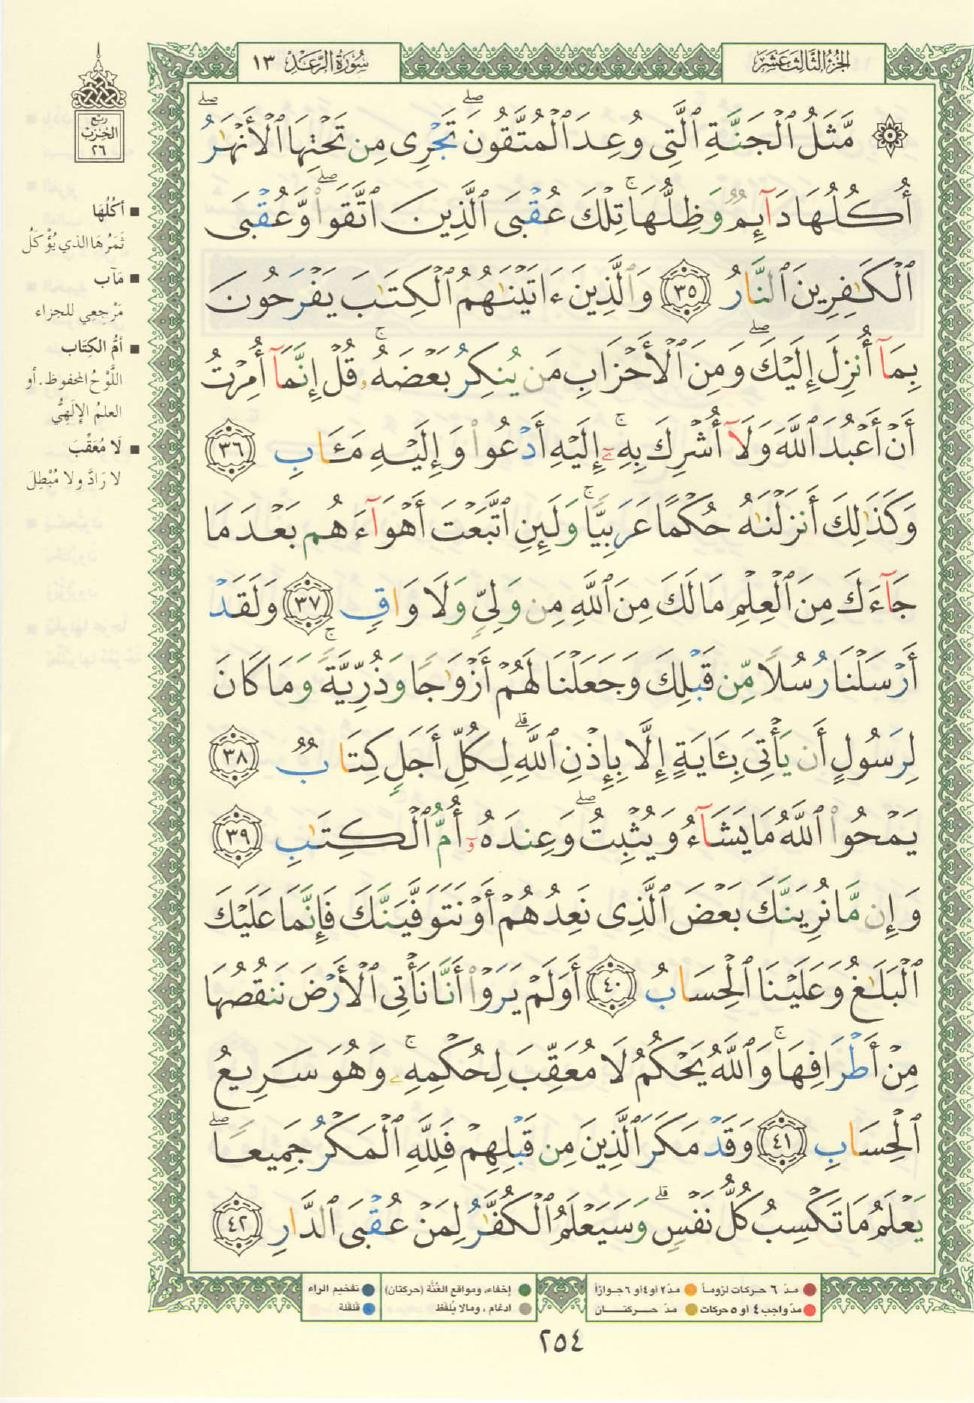 الجزء الثالث عشر
سورة الرعد ١٣
ربع
الحزب
٢٦
۞ مَّثَلُ ٱلْجَنَّةِ ٱلَّتِى وُعِدَ ٱلْمُتَّقُونَ ۖ تَجْرِى مِن تَحْتِهَا ٱلْأَنْهَٰرُ ۖ
أُكُلُهَا دَآئِمٌ وَظِلُّهَا ۚ تِلْكَ عُقْبَى ٱلَّذِينَ ٱتَّقَوا۟ ۖ وَّعُقْبَى
ٱلْكَٰفِرِينَ ٱلنَّارُ ٣٥ وَٱلَّذِينَ ءَاتَيْنَٰهُمُ ٱلْكِتَٰبَ يَفْرَحُونَ
بِمَآ أُنزِلَ إِلَيْكَ ۖ وَمِنَ ٱلْأَحْزَابِ مَن يُنكِرُ بَعْضَهُۥ ۚ قُلْ إِنَّمَآ أُمِرْتُ
أَنْ أَعْبُدَ ٱللَّهَ وَلَآ أُشْرِكَ بِهِۦٓ ۚ إِلَيْهِ أَدْعُوا۟ وَإِلَيْهِ مَـَٔابِ ٣٦
وَكَذَٰلِكَ أَنزَلْنَٰهُ حُكْمًا عَرَبِيًّا ۚ وَلَئِنِ ٱتَّبَعْتَ أَهْوَآءَهُم بَعْدَ مَا
جَآءَكَ مِنَ ٱلْعِلْمِ مَا لَكَ مِنَ ٱللَّهِ مِن وَلِىٍّ وَلَا وَاقٍ ٣٧ وَلَقَدْ
أَرْسَلْنَا رُسُلًا مِّن قَبْلِكَ وَجَعَلْنَا لَهُمْ أَزْوَٰجًا وَذُرِّيَّةً ۚ وَمَا كَانَ
لِرَسُولٍ أَن يَأْتِىَ بِـَٔايَةٍ إِلَّا بِإِذْنِ ٱللَّهِ ۗ لِكُلِّ أَجَلٍ كِتَابٌ ٣٨
يَمْحُوا۟ ٱللَّهُ مَا يَشَآءُ وَيُثْبِتُ ۖ وَعِندَهُۥٓ أُمُّ ٱلْكِتَٰبِ ٣٩
وَإِن مَّا نُرِيَنَّكَ بَعْضَ ٱلَّذِى نَعِدُهُمْ أَوْ نَتَوَفَّيَنَّكَ فَإِنَّمَا عَلَيْكَ
ٱلْبَلَٰغُ وَعَلَيْنَا ٱلْحِسَابُ ٤٠ أَوَلَمْ يَرَوْا۟ أَنَّا نَأْتِى ٱلْأَرْضَ نَنقُصُهَا
مِنْ أَطْرَافِهَا ۚ وَٱللَّهُ يَحْكُمُ لَا مُعَقِّبَ لِحُكْمِهِۦ ۚ وَهُوَ سَرِيعُ
ٱلْحِسَابِ ٤١ وَقَدْ مَكَرَ ٱلَّذِينَ مِن قَبْلِهِمْ فَلِلَّهِ ٱلْمَكْرُ جَمِيعًا ۖ
يَعْلَمُ مَا تَكْسِبُ كُلُّ نَفْسٍ ۗ وَسَيَعْلَمُ ٱلْكُفَّٰرُ لِمَنْ عُقْبَى ٱلدَّارِ ٤٢
■ أُكُلُهَا
ثَمَرُهَا الذي يُؤْكَلُ
■ مَآب
مَرْجِعِي للجزاء
■ أمُّ الكِتَاب
اللَّوْحُ المحفوظ . أو
العلمُ الإلَهِيُّ
■ لَا مُعَقِّبَ
لا رَادَّ ولا مُبْطِلَ
مدّ ٦ حركات لزوماً
مدّ ٢ أو ٤ أو ٦ جوازاً
إخفاء، ومواقع الغُنَّة (حركتان)
تفخيم الراء
مدّ واجب ٤ أو ٥ حركات
مدّ حركتان
ادغام ، ومالا يُلفَظ
قلقلة
٢٥٤